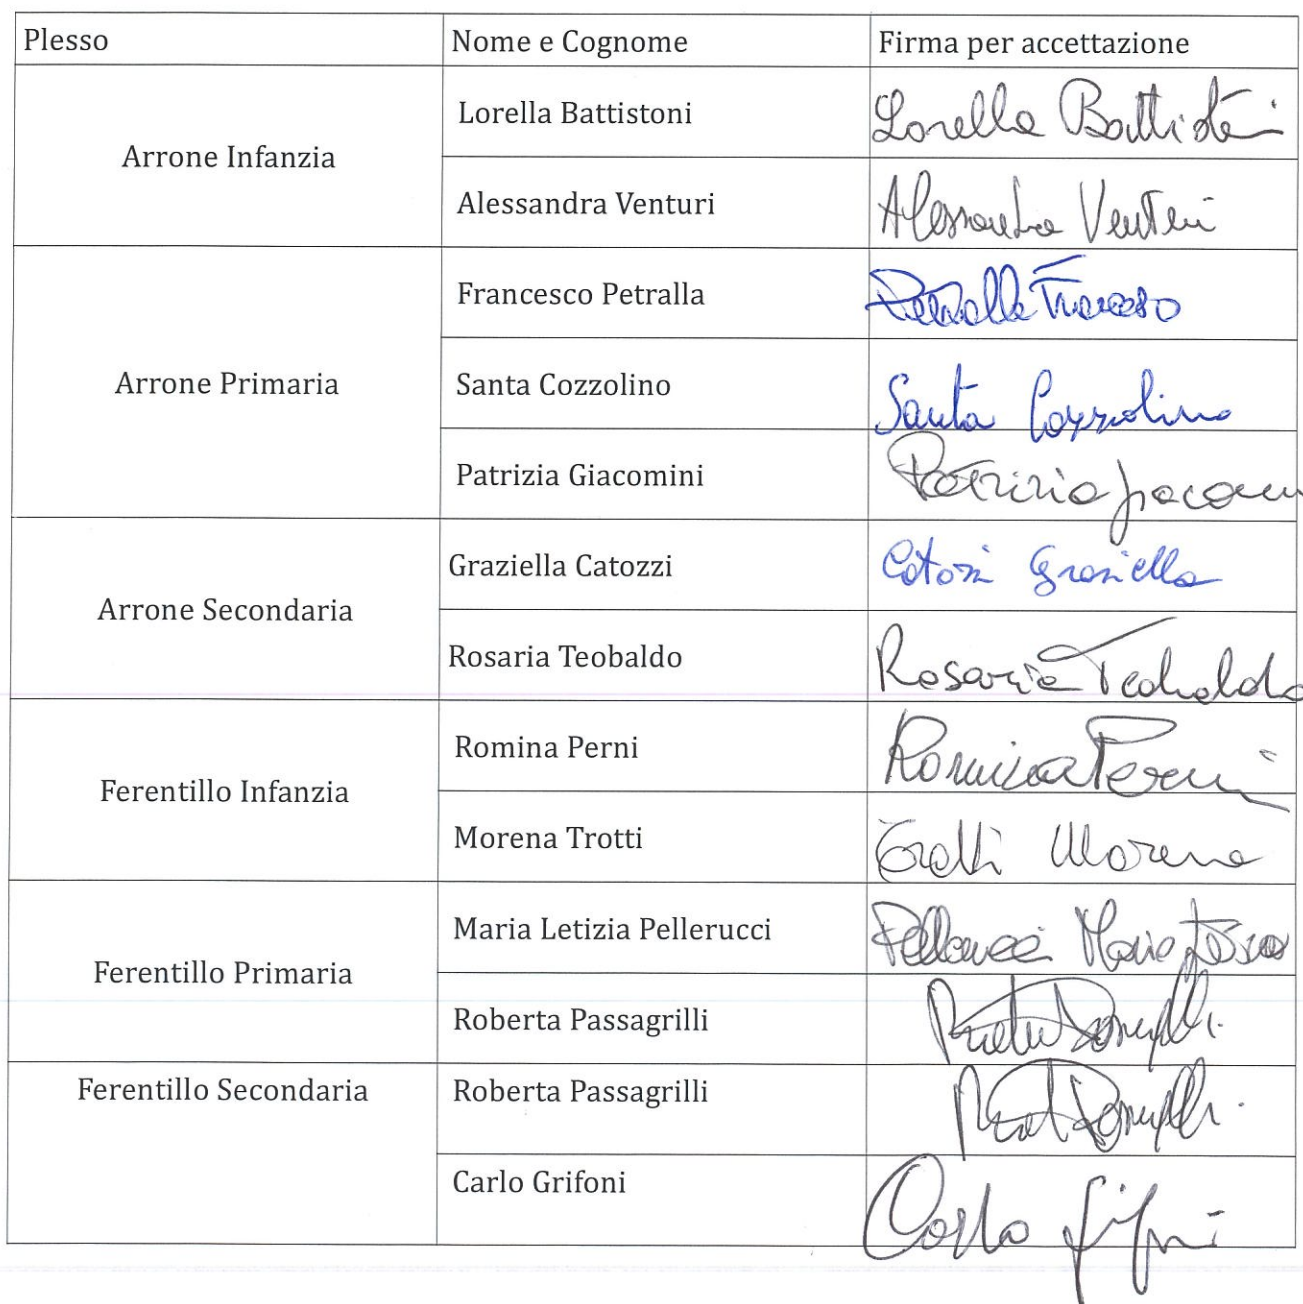 Plesso Nome e Cognome Firma per accettazione
Arrone Infanzia
Lorella Battistoni Lorella Battistoni
Alessandra Venturi Alessandra Venturi
Arrone Primaria
Francesco Petralla Petralla Francesco
Santa Cozzolino Santa Cozzolino
Patrizia Giacomini Patrizia Giacomini
Arrone Secondaria
Graziella Catozzi Catozzi Graziella
Rosaria Teobaldo Rosaria Teobaldo
Ferentillo Infanzia
Romina Perni Romina Perni
Morena Trotti Trotti Morena
Ferentillo Primaria
Maria Letizia Pellerucci Pellerucci Maria Letizia
Roberta Passagrilli
Ferentillo Secondaria
Roberta Passagrilli
Carlo Grifoni Carlo Grifoni